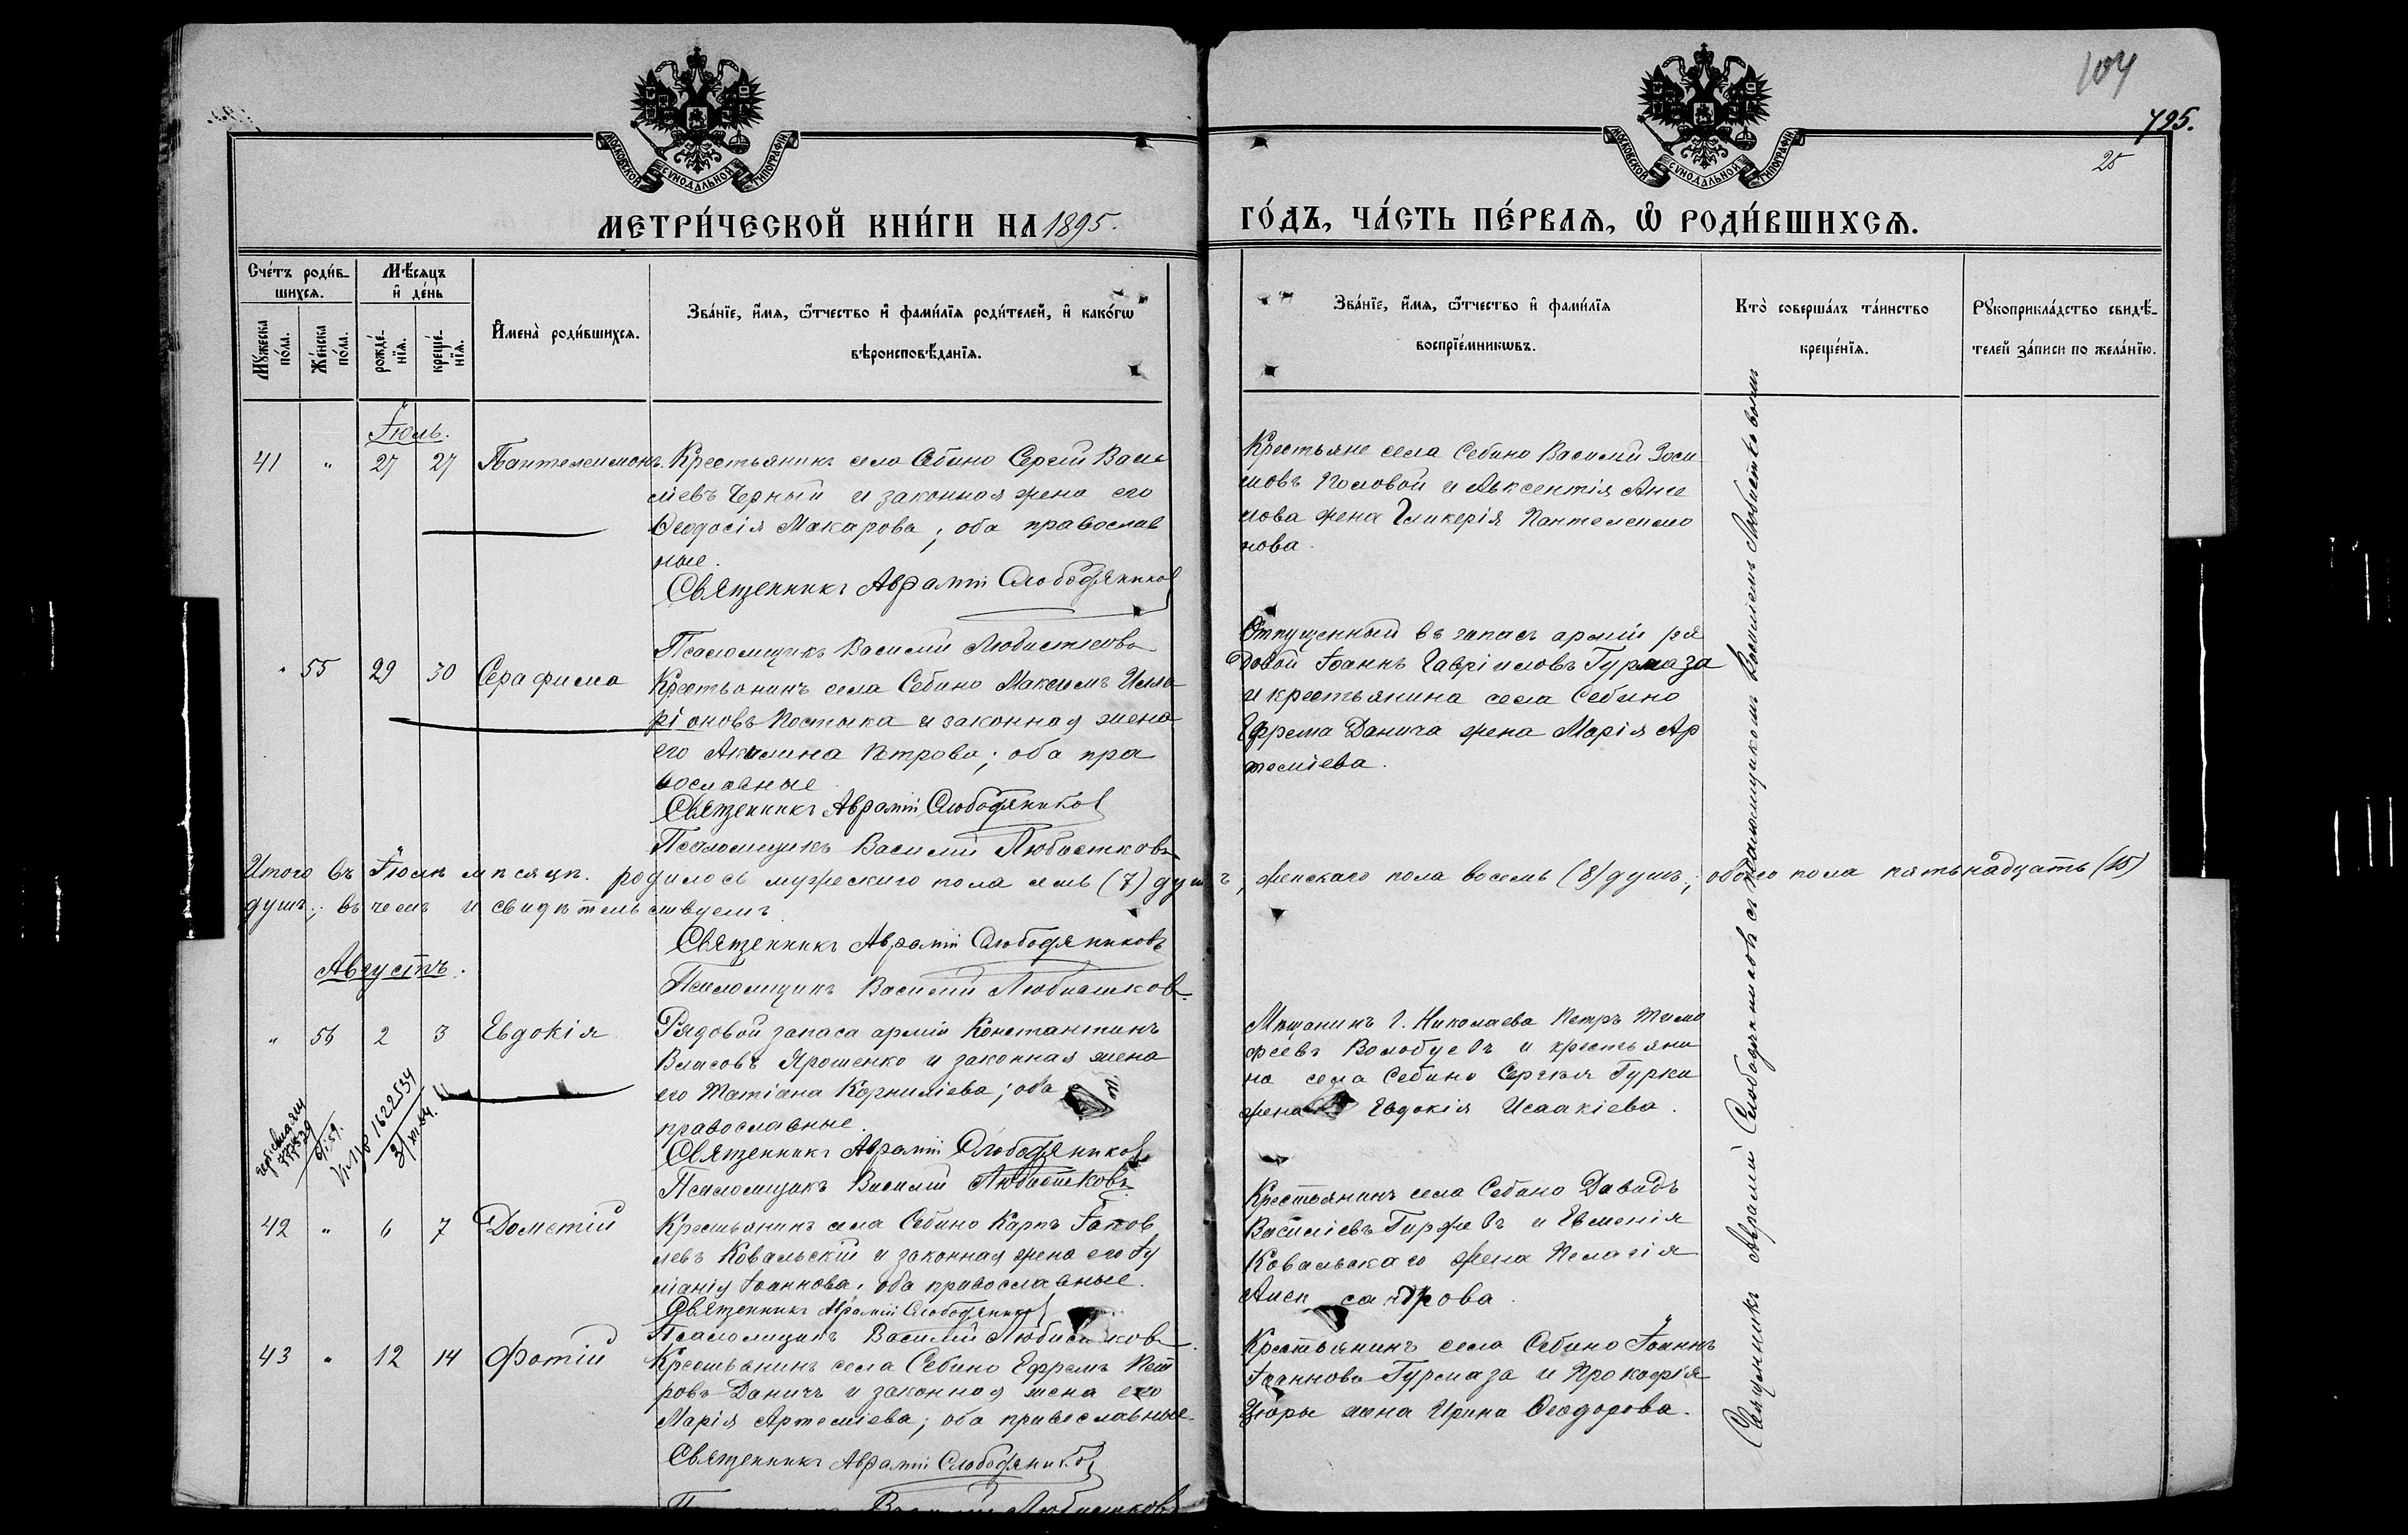 104
795.
25
МОСКОВСКОЙ СѴНОДАЛЬНОЙ ТИПОГРАФІИ
МОСКОВСКОЙ СѴНОДАЛЬНОЙ ТИПОГРАФІИ
МЕТРИ́ЧЕСКОЙ КНИ́ГИ НА 1895.
ГО́ДЪ, ЧА́СТЬ ПЕ́РВАѦ, Ѡ РОДИ́ВШИХСѦ.
Сче́тъ роди́в-
шихсѧ.
Мꙋ́жеска по́ла.
Же́нска по́ла.
Мѣ́сѧцъ
и҆ де́нь
рожде́-
нїѧ.
креще́-
нїѧ.
И҆мена̀ роди́вшихсѧ.
Зва́нїе, и҆́мѧ, ѻ҆́тчество и҆ фами́лїѧ роди́телей, и҆ како́гѡ
вѣроисповѣ́данїѧ.
Зва́нїе, и҆́мѧ, ѻ҆́тчество и҆ фами́лїѧ
воспрїе́мникѡвъ.
Кто̀ соверша́лъ та́инство
креще́нїѧ.
Рꙋкоприкла́дство свидѣ́-
телей за́писи по жела́нїю.
Іюль.
41 " 27 27 Пантелеимонъ. Крестьянинъ села Себино Сергій Васи
ліевъ Черный и законная жена его
Ѳеодосія Макарова; оба православ
ные.
Священникъ Аврамій Слободяников
Псаломщикъ Василий Любистковъ
Крестьяне села Себино Василий Зоси
мовъ Половой и Авксентія
жена Гликерія Пантелеимо
нова.
" 55 29 30 Серафима Крестьянинъ села Себино Максимъ Илла
ріоновъ Костыка и законная жена
его Акилина Петрова; оба пра
вославные
Священникъ Аврамій Слободяников
Псаломщикъ Василий Любистковъ
Отпущенный въ запасъ арміи ря
довой Іоаннъ Гавріиловъ Гурмаза
и крестьянина села Себино
Ефрема Данича жена Марія Ар
теміева.
Итого въ Іюлѣ мѣсяцѣ родилось мужескаго пола семь (7) душъ, женскаго пола восемь (8) душъ; обоего пола пятьнадцать (15)
душъ; въ чемъ и свидѣтельствуемъ
Священникъ Аврамій Слободяниковъ
Псаломщикъ Василий Любистков
Августъ.
" 56 2 3 Евдокія Рядовой запаса арміи Константинъ
Власовъ Ярошенко и законная жена
его Татіана Корниліева; оба
православные.
Священникъ Аврамій Слободяников
Псаломщикъ Василий Любистковъ
1622534
Мѣщанинъ г. Николаева Петръ Тимо
феевъ Волобуевъ и крестьяни
на села Себино Сергѣя Гурки
жена Евдокія Исаакіева.
42 " 6 7 Дометій Крестьянинъ села Себино Карпъ Іаков
левъ Ковальскій и законная жена его Іу
ліанія Іоаннова; оба православные.
Священникъ Аврамій Слободяников
Псаломщикъ Василий Любистков
Крестьянинъ села Себино Давидъ
Василіевъ Гиржевъ и Евменія
Ковальскаго жена Пелагія
Александрова
43 " 12 14 Фотій Крестьянинъ села Себино Ефремъ Пет
ровъ Даничъ и законная жена его
Марія Артеміева; оба православные
Священникъ Аврамій Слободяников
Василий Любистковъ
Крестьянинъ села Себино Іоаннъ
Іоанновъ Гурмаза и Прокофія
Цюры жена Ирина Ѳеодорова.
Священникъ Аврамій Слободяниковъ съ псаломщикомъ Василіемъ Любистковымъ